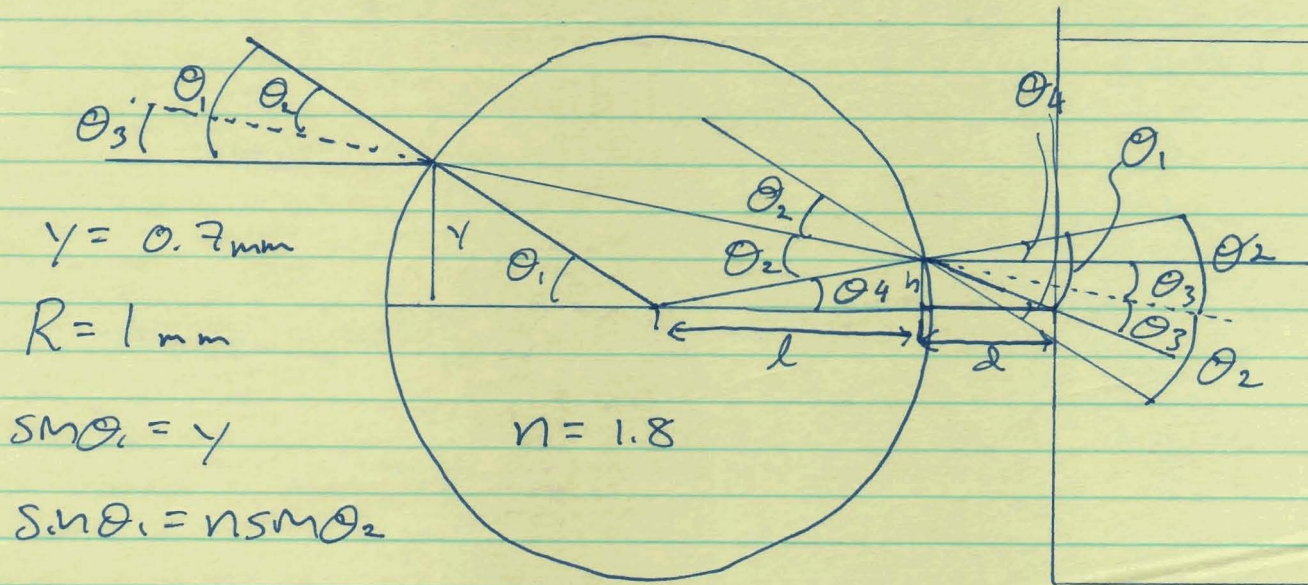 θ₃ θ₁ θ₂
y = 0.7mm
R = 1mm
sinθ₁ = y
sinθ₁ = n sinθ₂
y
θ₁
n = 1.8
θ₂
θ₂
θ₄ h
l
d
θ₄
θ₁
θ₂
θ₃
θ₃
θ₂